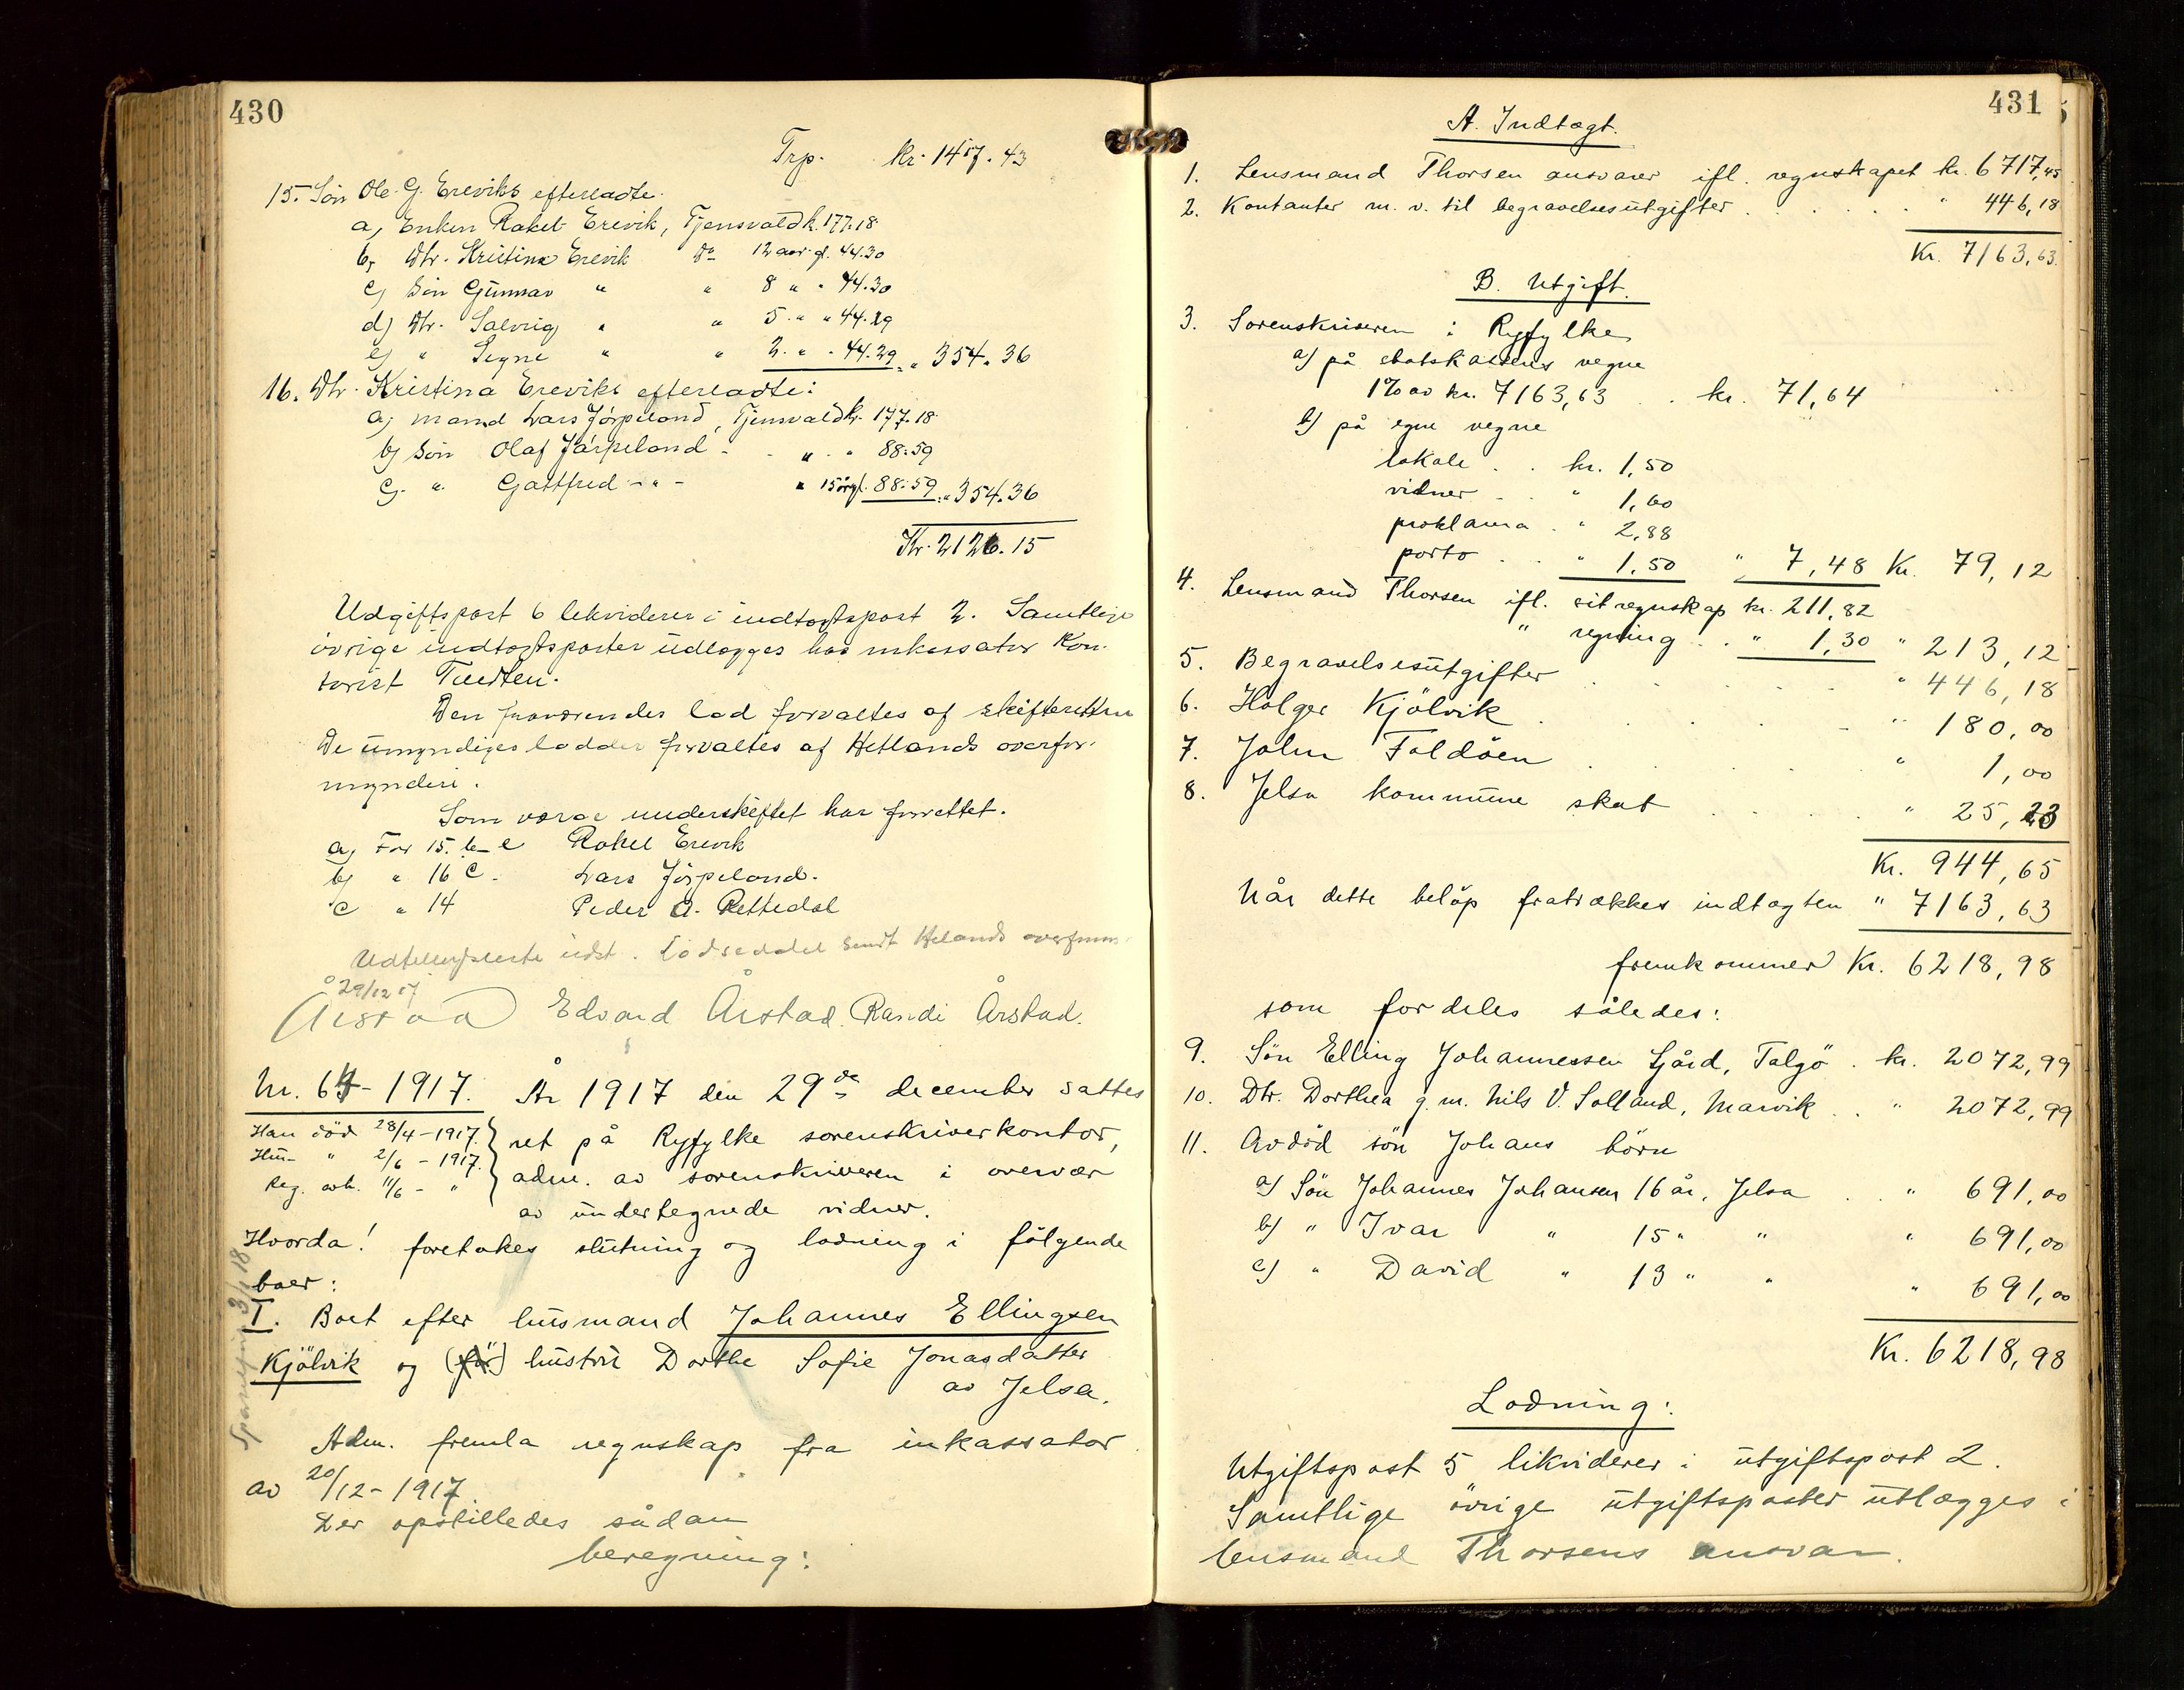 430
Trp. kr. 1417.43
15. Søn Ole G. Ereviks efterladte:
a, Enken Rakel Erevik, Tjensvold k. 177.18
b, Dtr. Kristina Erevik do 12 aar gl. 44.30
c) Søn Gunnar " " 8 " " 44.30
d) Dtr. Solveig " " 5 " " 44.29
e) " Signe " " 2 " " 44.29 " 354.36
16. Dtr. Kristina Ereviks efterladte:
a, mand Lars Jørpeland, Tjensvold kr. 177.18
b) Søn Olaf Jørpeland " " 88.59
c. " Gottfred - " - " 15 år gl. 88.59 " 354.36
Kr. 2126.15
Udgiftspost 6 likvideres i indtægtspost 2. Samtlige
øvrige indtægtsposter udlægges hos inkassator Kon-
torist Tuedten.
Den fraværendes lod forvaltes af skifteretten
De umyndiges lodder forvaltes af Hetlands overfor-
mynderi.
Som værge underskiftet har forrettet.
a, For 15. b-e Rakel Erevik
b) " 16 c. Lars Jørpeland.
c " 14 Peder A. Rettedal
udst. Lodseddel sendt Hetlands overform.
29/12 17
Årstad Edvard Årstad. Randi Årstad.
Nr. 64 - 1917. År 1917 den 29de december sattes
Han död 28/4 - 1917. ret på Ryfylke sorenskriverkontor,
Hun " 2/6 - 1917. adm. av sorenskriveren i overvær
Reg. avh. 11/6 - " av undertegnede vidner.
Hvorda! foretokes slutning og lodning i fölgende
boer:
I. Boet efter husmand Johannes Ellingsen
Kjölvik og hustru Dorthe Sofie Jonasdatter
av Jelsa.
Adm. fremla regnskap fra inkassator
av 20/12 - 1917
Der opstilledes sådan
beregning:
3/1 18
431
A. Indtægt.
1. Lensmand Thorsen ansvarer ifl. regnskapet kr. 6717,45
2. Kontanter m. v. til begravelsesutgifter " 446,18
Kr. 7163,63.
B. Utgift.
3. Sorenskriveren i Ryfylke
a) på statskassens vegne
1% av kr. 7163,63 . . kr. 71,64
b) på egne vegne
lokale . . kr. 1,50
vidner . . " 1,60
proklama . " 2,88
porto . . " 1,50 " 7,48 Kr. 79,12
4. Lensmand Thorsen ifl. sit regnskap kr. 211,82
" regning . . " 1,30 " 213,12
5. Begravelsesutgifter " 446,18
6. Holger Kjölvik " 180,00
7. John Foldöen " 1,00
8. Jelsa kommune skat " 25,23
Kr. 944,65
Når dette belöp fratrækkes indtægten " 7163,63
fremkommer Kr. 6218,98
som fordeles således:
9. Sön Elling Johannessen Gård, Talgö . kr. 2072,99
10. Dtr. Dorthea g. m. Nils V. Solland, Marvik . . " 2072,99
11. Avdöd sön Johans börn
a) Sön Johannes Johansen 16 år, Jelsa . . " 691,00
b) " Ivar " 15 " " " 691,00
c) " David " 13 " " " 691,00
Kr. 6218,98
Lodning:
Utgiftspost 5 likviderer i utgiftspost 2.
Samtlige övrige utgiftsposter utlægges i
lensmand Thorsens ansvar.